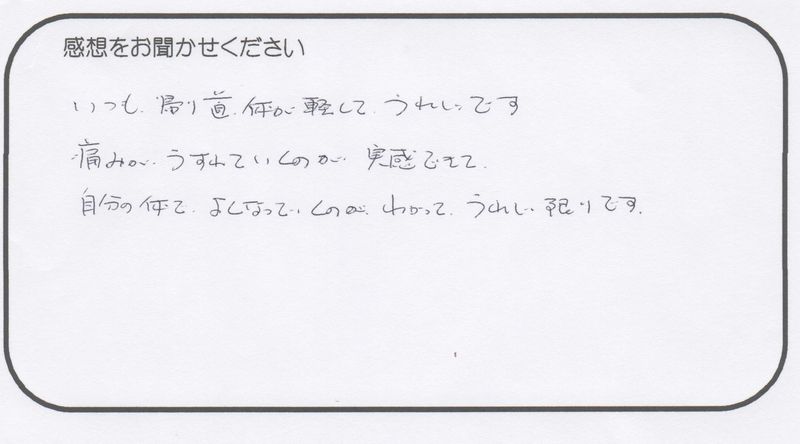 感想をお聞かせください
いつも、帰り道、体が軽くて、うれしいです
痛みが、うすれていくのが、実感できて、
自分の体で、よくなっていくのが、わかって、うれしい限りです。